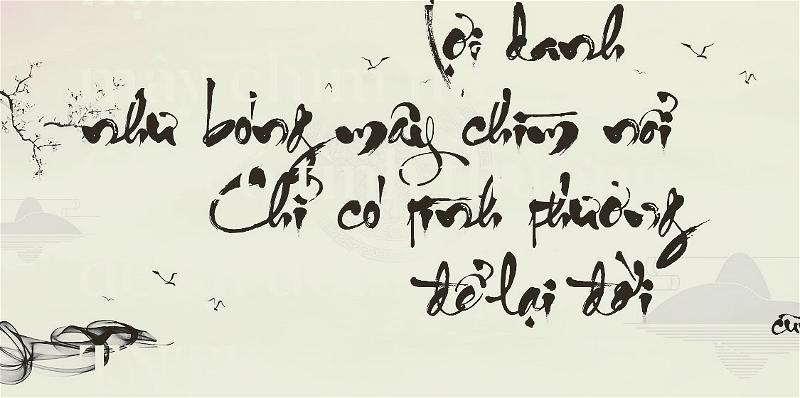 Lợi danh
như bóng mây chìm nổi
Chỉ có tình thương
để lại đời